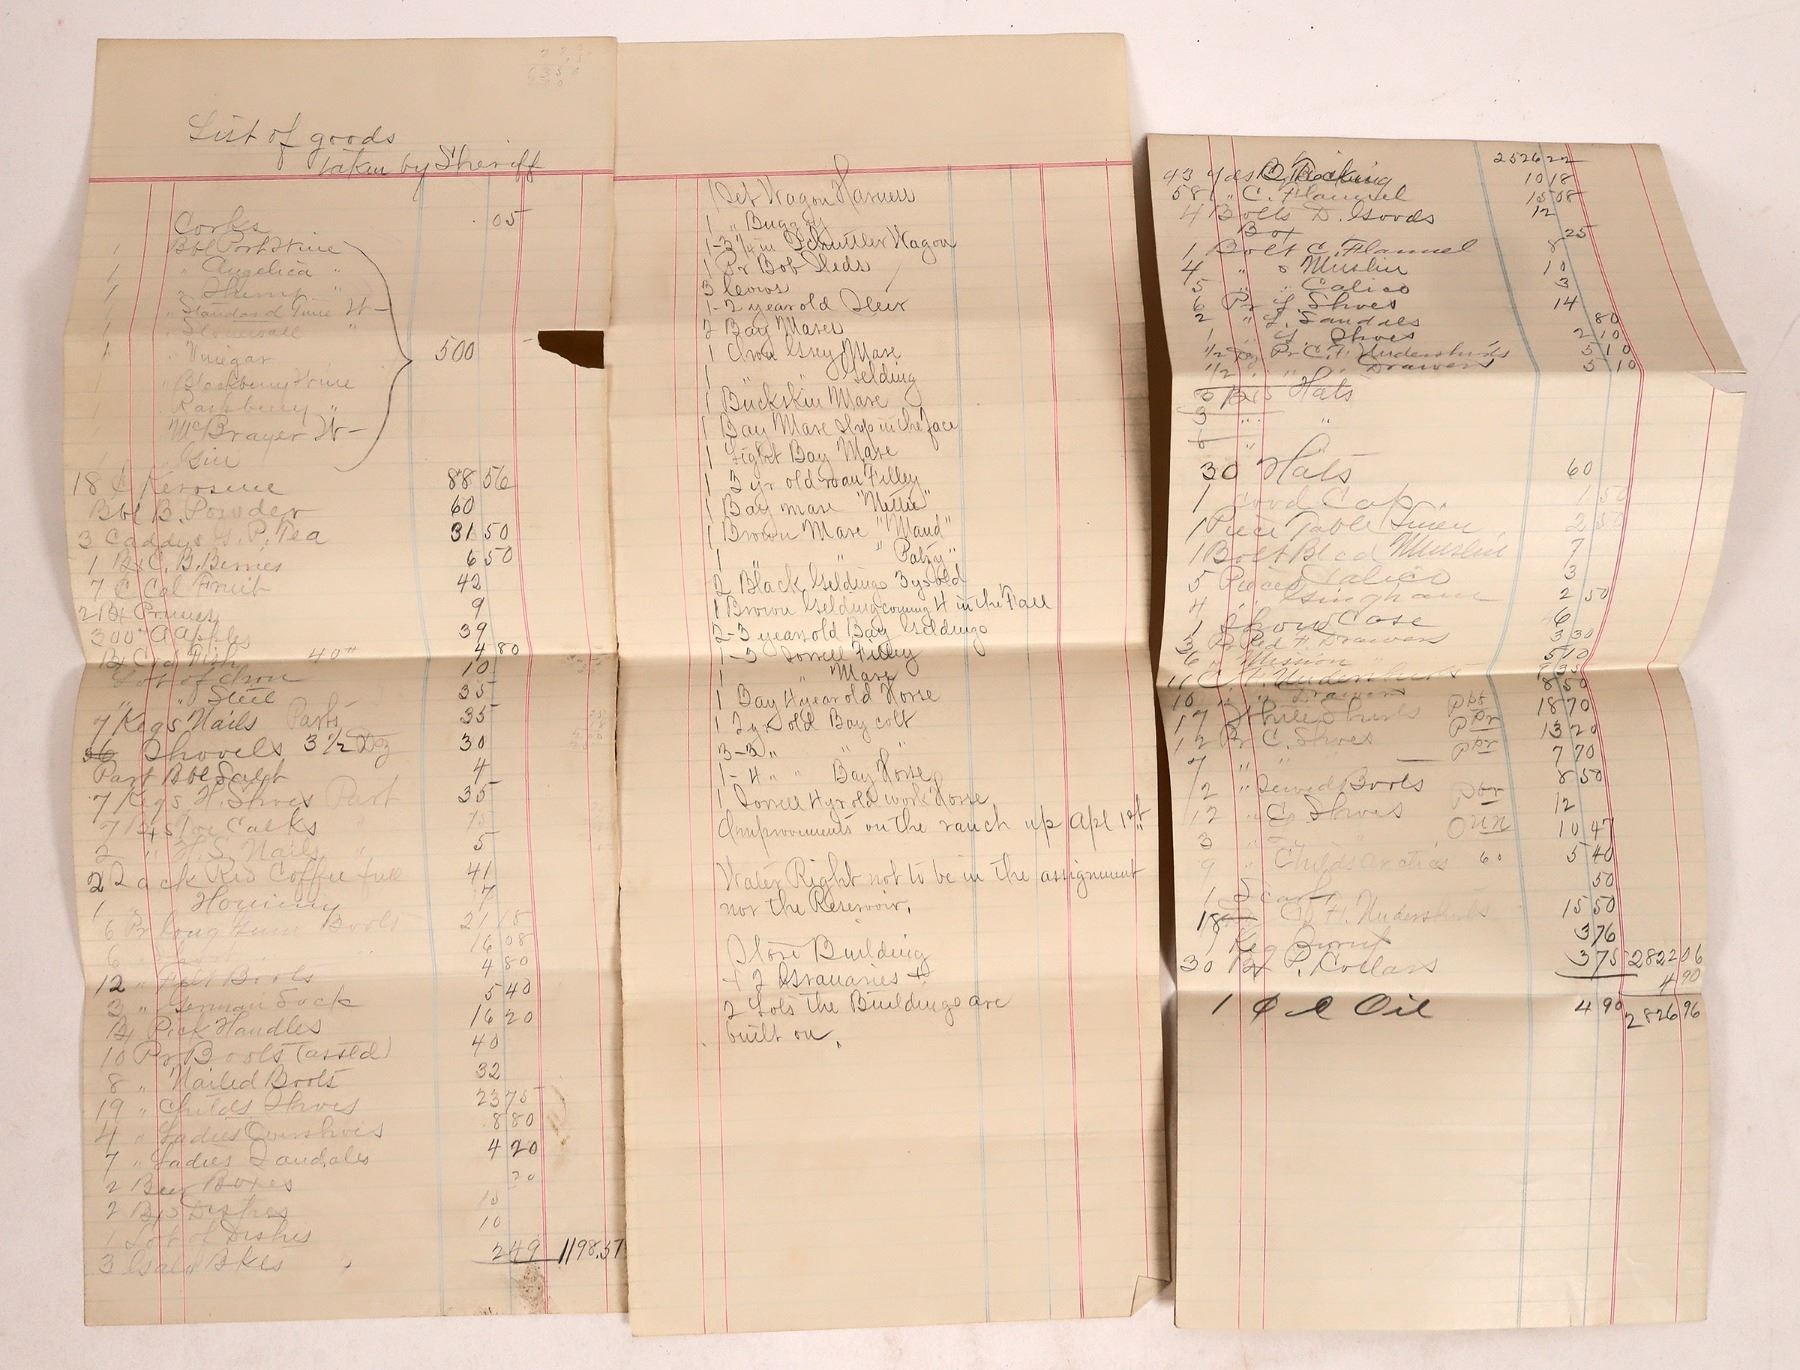 List of goods
Taken by Sheriff
Corks .05
1 Bbl Port Wine
1 " Angelica "
1 " "
1 " Standard W
1 " Stonewall "
1 " Vinegar 500
1 " Blackberry Wine
1 Raspberry "
1 McBrayer W
1 Gin
18 C Kerosene 88 56
Bbl B. Powder 60
3 Caddys G. P. Tea 31 50
1 Bx C. B. Berries 6 50
7 C Cal Fruit 42
2 Bx Prunes 9
300" Apples 39
Bx Cod Fish 40" 4 80
Lot of Iron 10
" " Steel 35
7 Kegs Nails Parts 35
36 Shovels 3 1/2 Doz 30
Part Bbl Salt 4
7 Kegs H. Shoes Part 35
7 Bxs Toe Calks 15
2 " H. S. Nails " 5
2 Sack Rio Coffee full 41
1 " Hominy 7
6 Pr Long Gum Boots 21 15
6 " " " 16 08
12 " Felt Boots 4 80
3 " German Sock 5 40
Bx Pick Handles 16 20
10 Pr Boots (asstd) 40
8 " Nailed Boots 32
19 " Childs Shoes 23 75
4 " Ladies Overshoes 8 80
7 " Ladies Sandales 4 20
2 Beer Boxes 20
2 Bxs Dishes 10
1 Lot of Dishes 10
3 Bxs 249 1198.57
1 Set Wagon Harness
1 " Buggy
1-3 1/4 in Schuttler Wagon
1 Pr Bob Sleds
3 Cows
1-2 year old Steer
2 Bay Mares
1 Iron Grey Mare
1 " " Gelding
1 Buckskin Mare
1 Bay Mare Strip in the face
1 Light Bay Mare
1 3 yr old roan Filley
1 Bay mare "Nettie"
1 Brown Mare "Maud"
1 " " "Patsy"
2 Black Geldings 3 ys old
1 Brown Gelding coming 4 in the Fall
2-3 years old Bay Geldings
1-3 Sorrell Filley
1 " Mare
1 Bay 4 year old Horse
1 2 yr old Bay colt
3-3 " " "
1-4 " " Bay Horse
1 Sorrell 4 yr old work Horse
Improvements on the ranch up Apl 1st
Water Right not to be in the assignment
nor the Reservoir.
Store Building
+ 2 Granaries +
2 Lots the Buildings are
built on.
2526 22
43 yds B. Ticking 10 18
58 " C. Flannel 15 08
4 Bolts D. Goods 12
Box 25
1 Bolt C. Flannel 8
4 " " Muslin 10
5 " " Calico 3
6 Pr L. Shoes 14
2 " L. Sandals 80
1 " Shoes 2 10
1/2 Doz Pr C. F. Undershirts 5 10
1/2 " " " " Drawers 5 10
3 Bxs Hats
3 " "
6 "
30 Hats 60
1 Cord Cap 1 50
1 Piece Table Linen 2 50
1 Bolt Blcd Muslin 7
5 Pieces Calico 3
4 " Gingham 2 50
1 Show Case 6
3 Pr Red F. Drawers 3 30
6 " Mission " 5 10
11 C. F. Undershirts 9 35
10 " " Drawers 8 50
17 White Shirts 18 70
12 Pr C. Shoes 13 20
7 " " 7 70
2 " Sewed Boots 8 50
12 " C. Shoes 12
3 " " " 10 47
9 " Childs Arctics 60 5 40
1 Scarf 50
18 C. F. Undershirts 15 50
1 Keg 3 76
30 Bx P. Collars 3 75 2822 06
4 90
1 C C Oil 4 90 2826 96